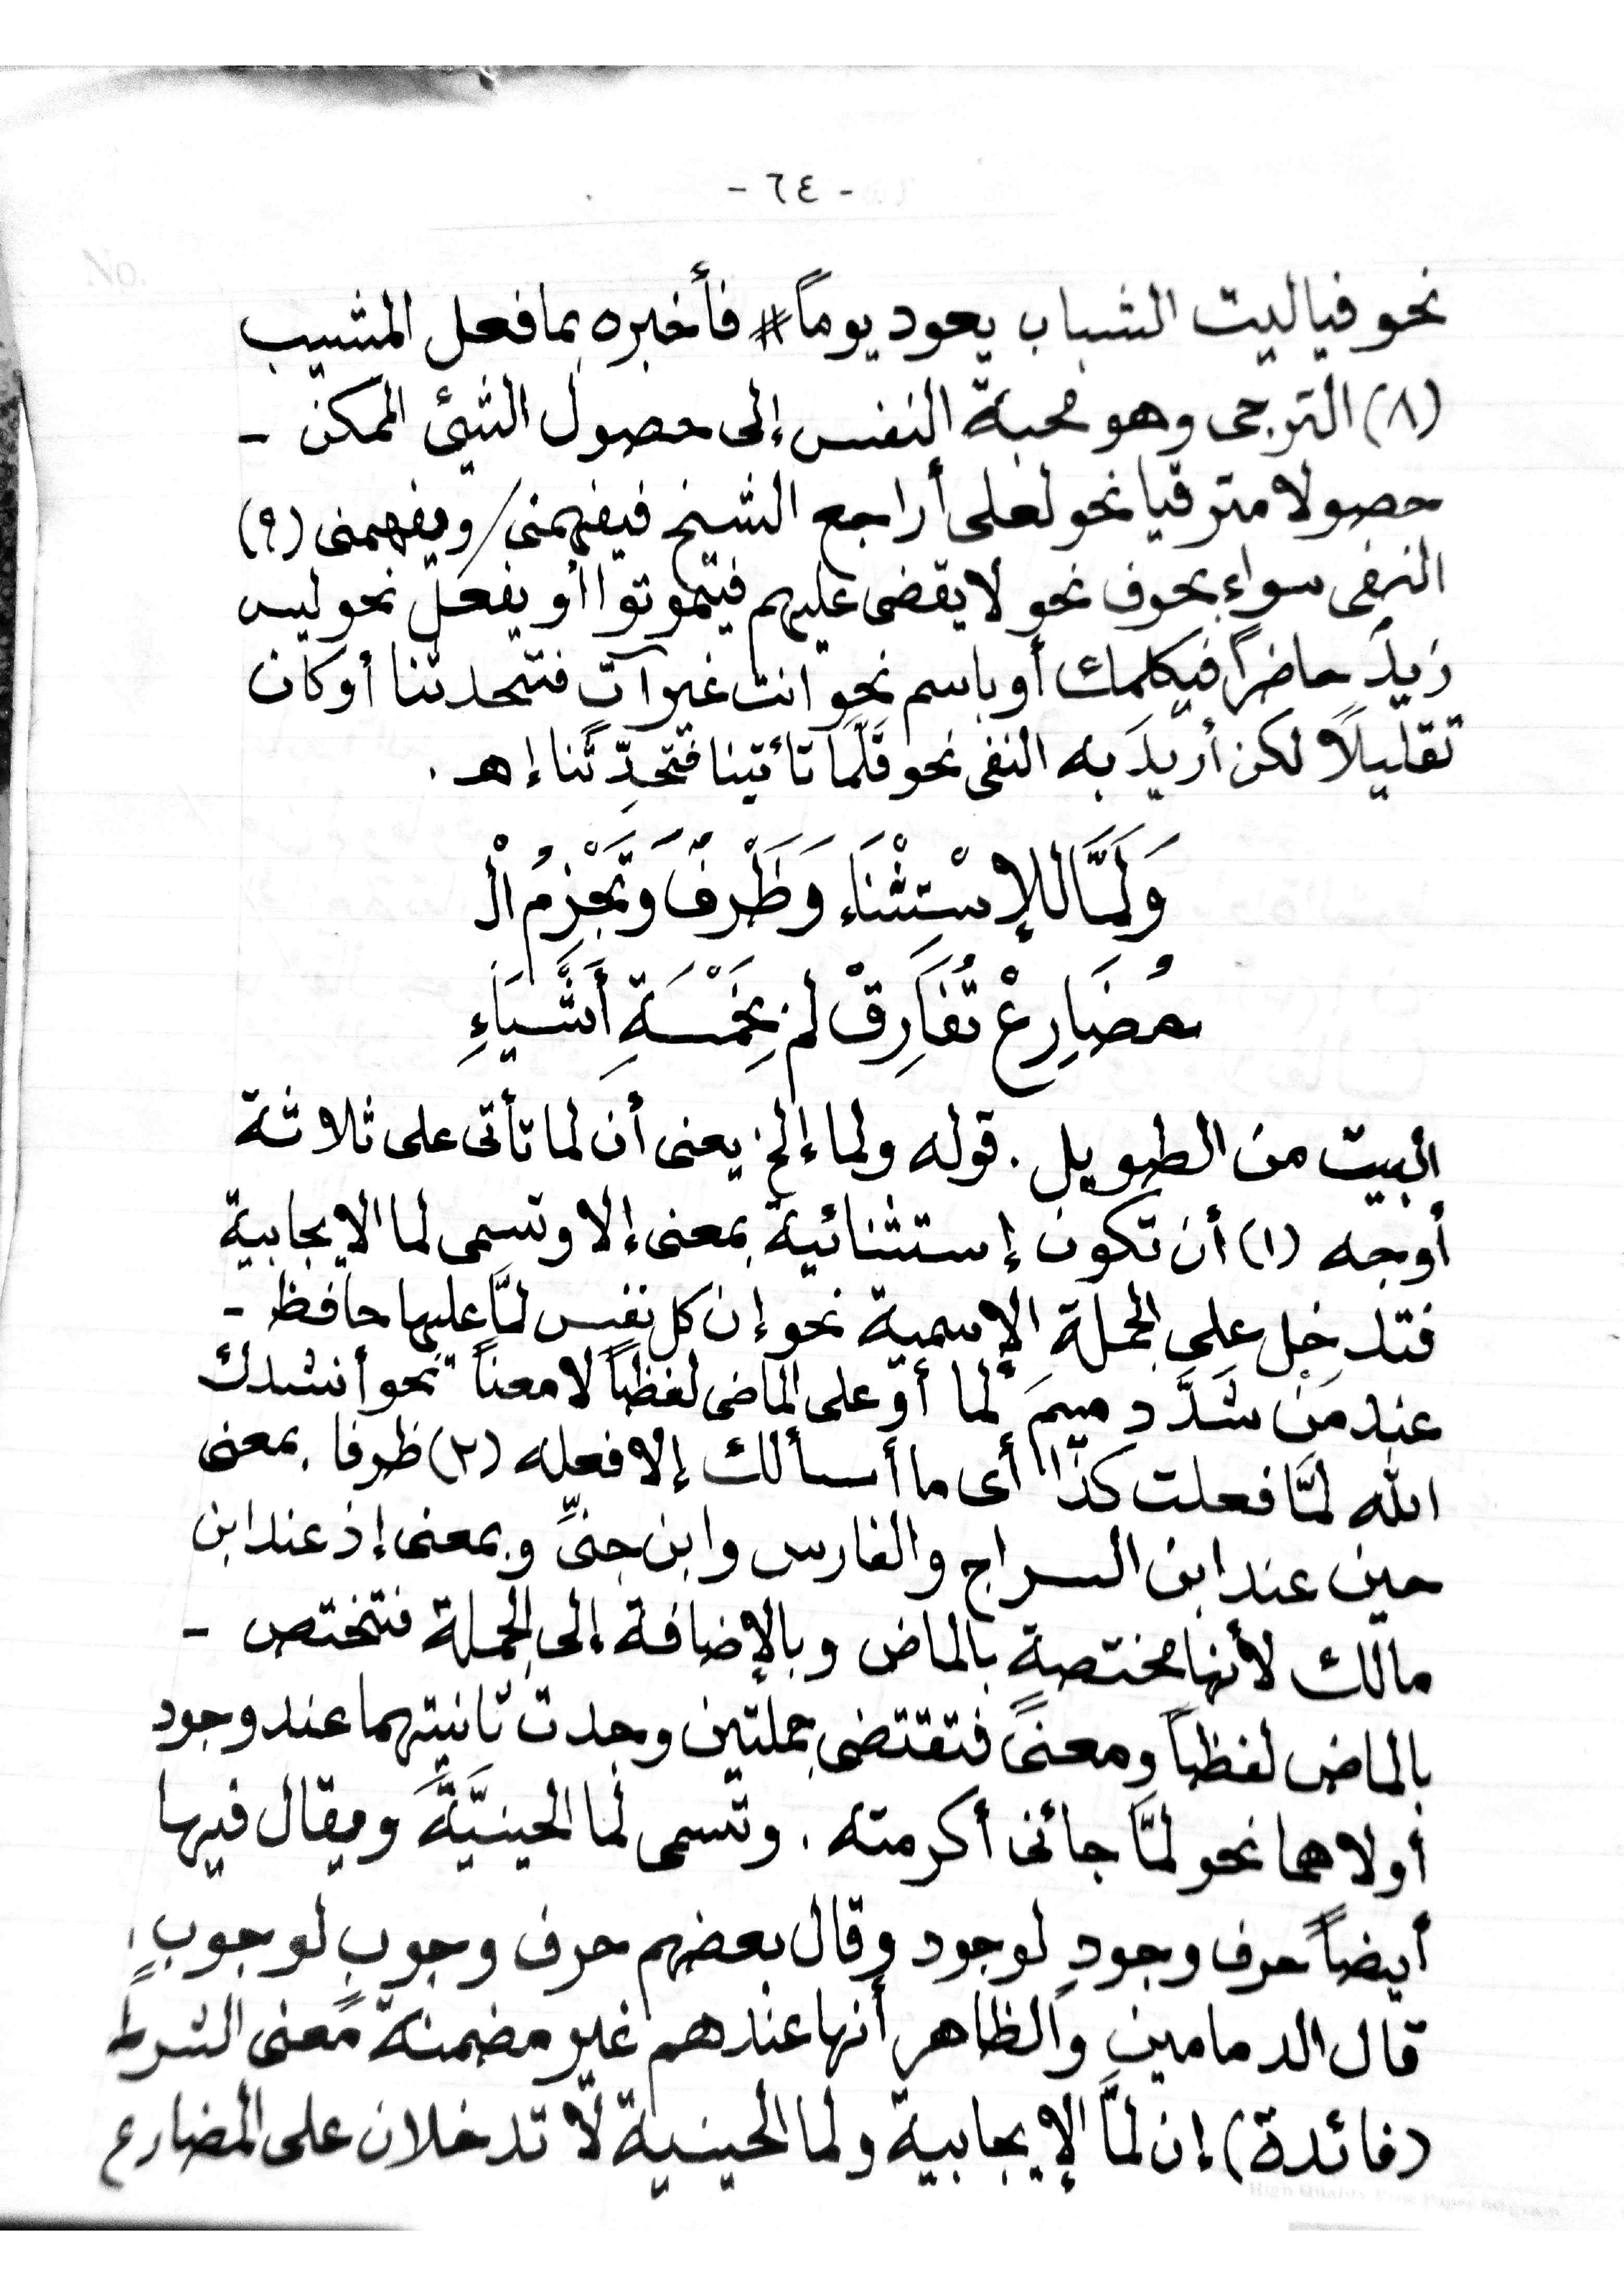 - ٦٤ -
نحو فياليت الشباب يعود يوماً # فأخبره بما فعل المشيب
(٨) الترجى وهو محبة النفس إلى حصول الشيئ الممكن -
حصولا مترقيا نحو لعلى أراجع الشيخ فيفهمنى / ويفهمنى (٩)
النفى سواء بحرف نحو لا يقضى عليهم فيتموتوا أو بفعل نحو ليس
زيدٌ حاضراً فيكلمك أو باسم نحو انت غير آتٍ فتتحدثنا أو كان
تقليلاً لكن أريدَ به النفى نحو قلّما تأتينا فتحدِّثَنا إهـ .
وَلَمَّا لِلإِسْتِثْنَاءِ وَظَرْفٌ وَتَجْزِمُ الْ
مُضَارِعْ تُفَارِقْ لم بِخَمْسَةِ أَشْيَاءِ
البيت من الطويل . قوله ولما إلخ يعنى أن لما تأتى على ثلاثة
أوجه (١) أن تكون إستثنائية بمعنى إلا وتسمى لما الإيجابية
فتدخل على الجملة الإسمية نحو إن كل نفس لمَّا عليها حافظ -
عند مَنْ شَدَّد ميمَ لما أو على الماضى لفظاً لا معناً نحو أنشدك
الله لمَّا فعلت كذا أى ما أسألك إلا فعله (٢) ظرفا بمعنى
حين عند ابن السراج والفارس وابن جنىِّ وبمعنى إذ عند ابن
مالك لأنها مختصة بالماض وبالإضافة إلى الجملة فتختص -
بالماض لفظاً ومعنىً فتقتضى جملتين وجدت ثانيتهما عند وجود
أولاهما نحو لمَّا جائنى أكرمته . وتسمى لما الحينيَّةَ ويقال فيها
أيضاً حرف وجودٍ لوجود وقال بعضهم حرف وجوبٍ لوجوبٍ .
قال الدمامين والظاهر أنها عندهم غير مضمنة معنى الشرط
(فائدة) إن لمَّا الإيجابية ولما الحينية لا تدخلان على المضارع